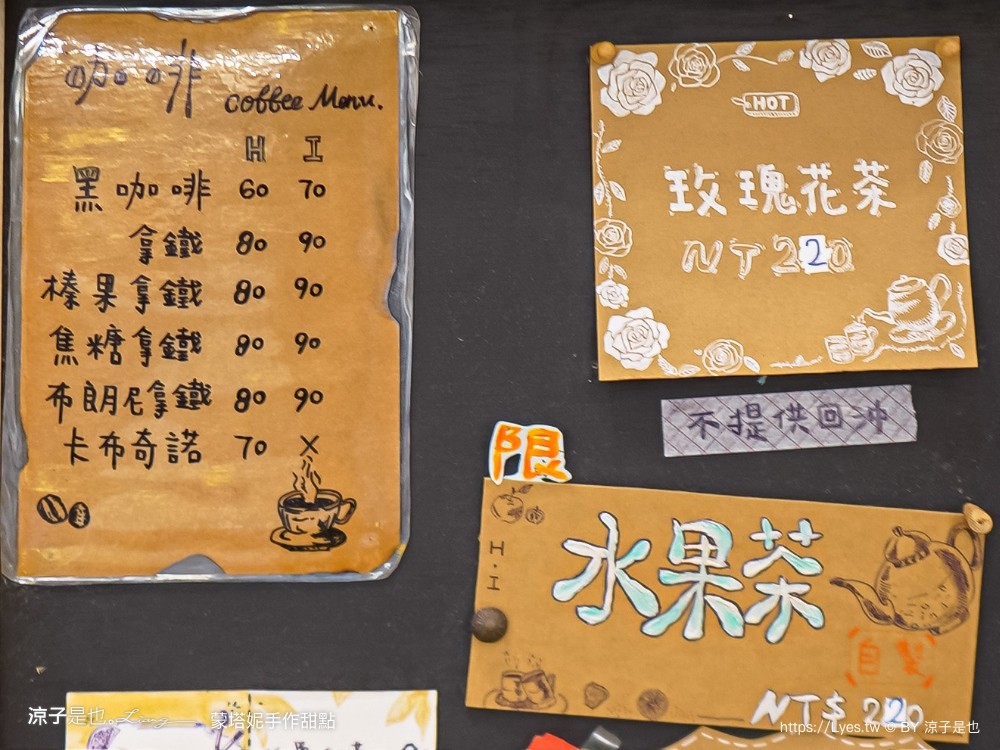 咖啡
coffee Menu.
H I
黑咖啡 60 70
拿鐵 80 90
榛果拿鐵 80 90
焦糖拿鐵 80 90
布朗尼拿鐵 80 90
卡布奇諾 70 X
HOT
玫瑰花茶
NT 220
不提供回沖
限
H·I
水果茶
自製
NT$ 220
涼子是也。 蒙塔妮手作甜點
https://Lyes.tw © BY 涼子是也